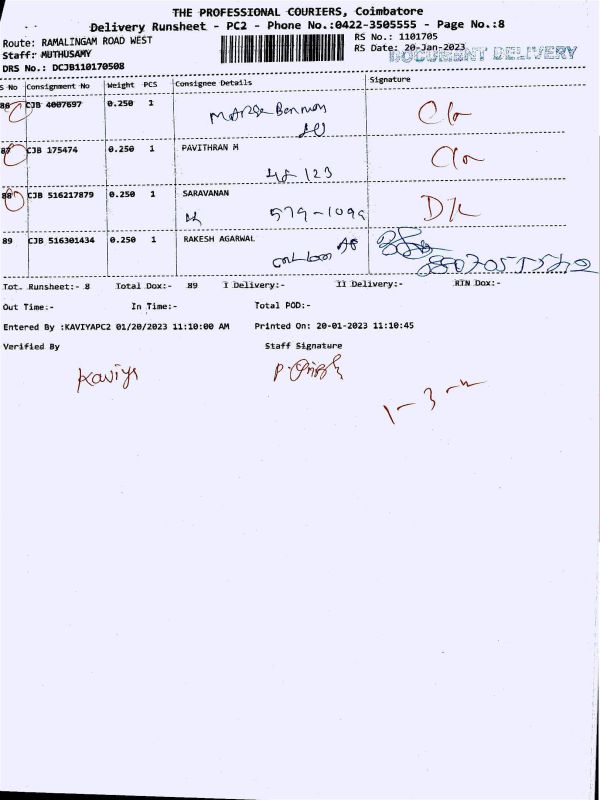 THE PROFESSIONAL COURIERS, Coimbatore
Delivery Runsheet - PC2 - Phone No.:0422-3505555 - Page No.:8
Route: RAMALINGAM ROAD WEST RS No.: 1101705
Staff: MUTHUSAMY RS Date: 20-Jan-2023 DOCUMENT DELIVERY
DRS No.: DCJB110170508
S No Consignment No Weight PCS Consignee Details Signature
86 CJB 4007697 0.250 1
87 CJB 175474 0.250 1 PAVITHRAN M
123
88 CJB 516217879 0.250 1 SARAVANAN D/L
579-1099
89 CJB 516301434 0.250 1 RAKESH AGARWAL
Tot. Runsheet:- 8 Total Dox:- 89 I Delivery:- II Delivery:- RTN Dox:-
Out Time:- In Time:- Total POD:-
Entered By :KAVIYAPC2 01/20/2023 11:10:00 AM Printed On: 20-01-2023 11:10:45
Verified By Staff Signature
Kaviya
1-3-